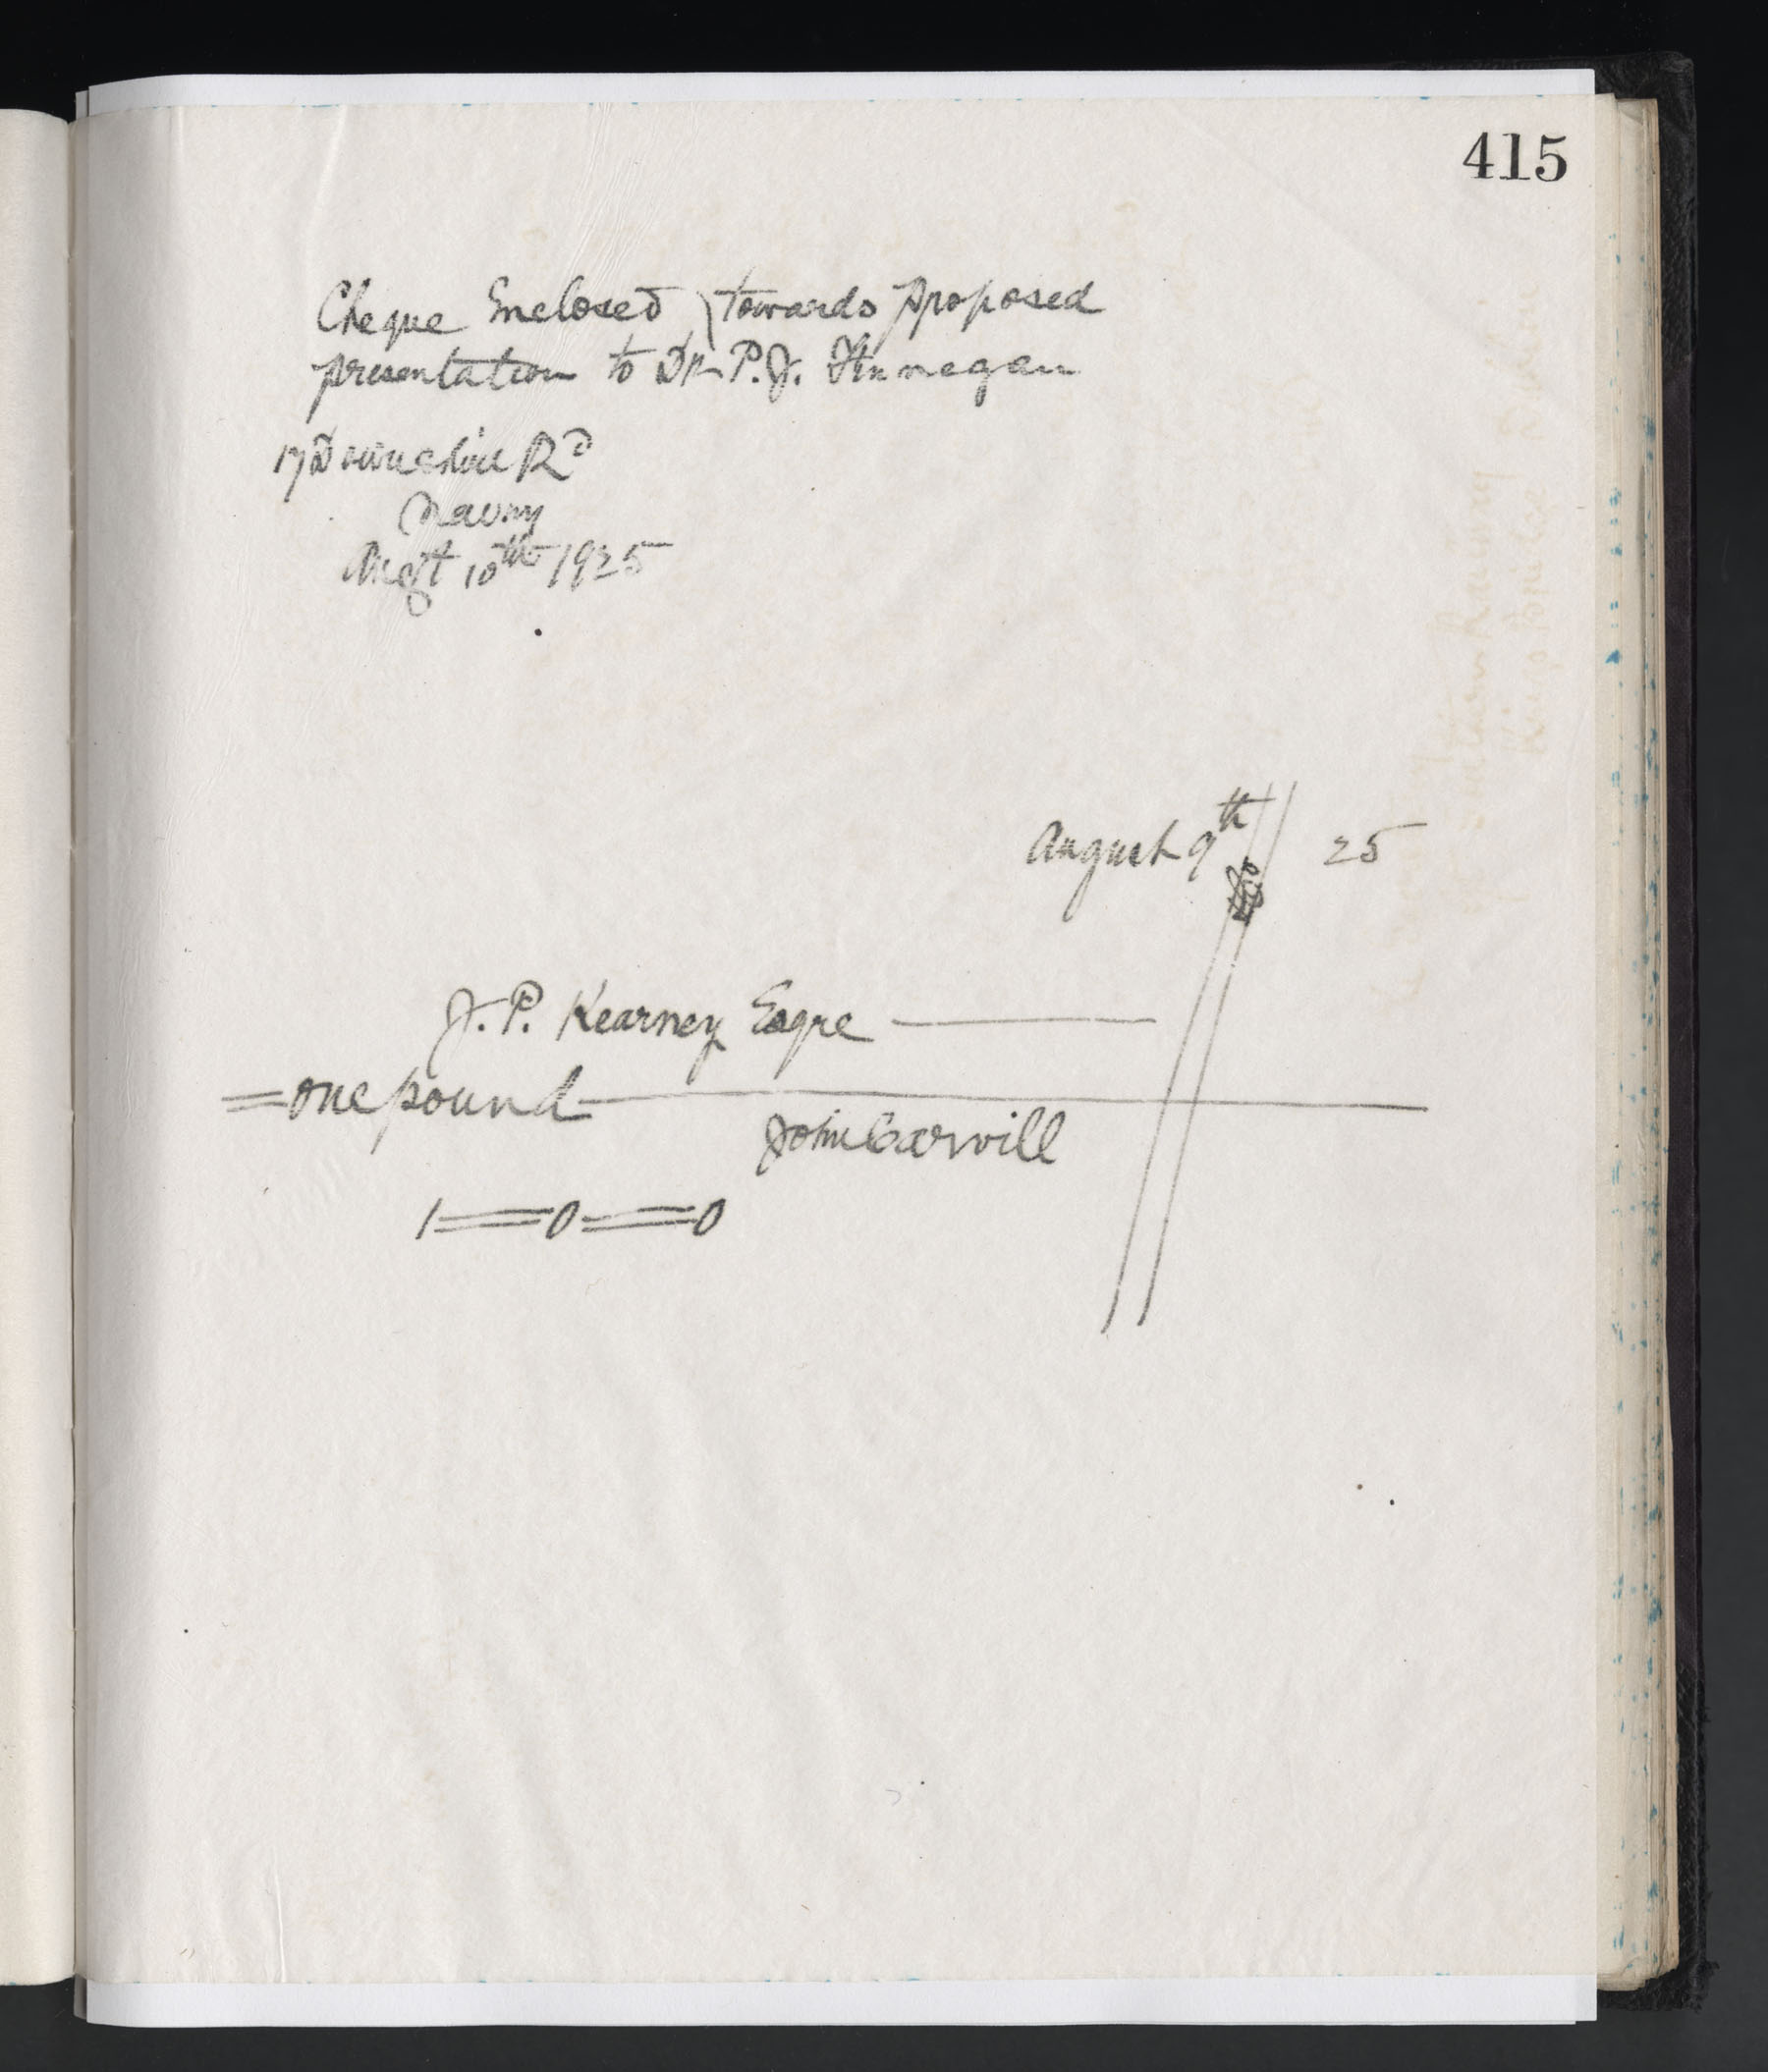 415
Cheque Enclosed towards proposed
presentation to Dr P.J. Finnegan
17 Downshire Rd
Newry
Augt 10th 1925
August 9th 25
J. P. Kearney Esqre
= one pound
John Carvill
1 = 0 = 0